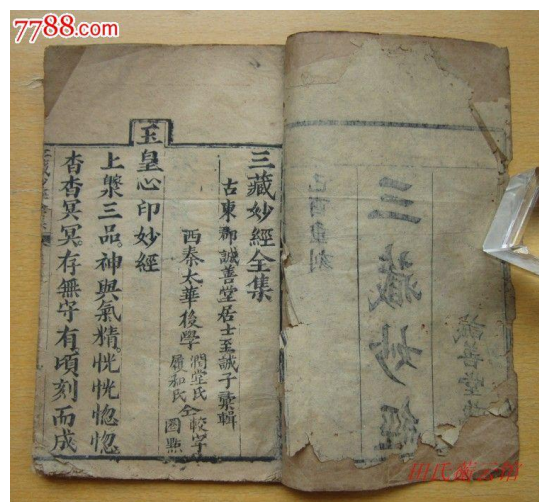 7788.com
三藏妙經
己酉重刻
誠善堂
三藏妙經全集
古東郡誠善堂居士至誠子彙輯
西秦太華後學
潤堂氏
履和氏
仝較字
圈點
玉皇心印妙經
上藥三品神與氣精恍恍惚惚
杳杳冥冥存無守有頃刻而成